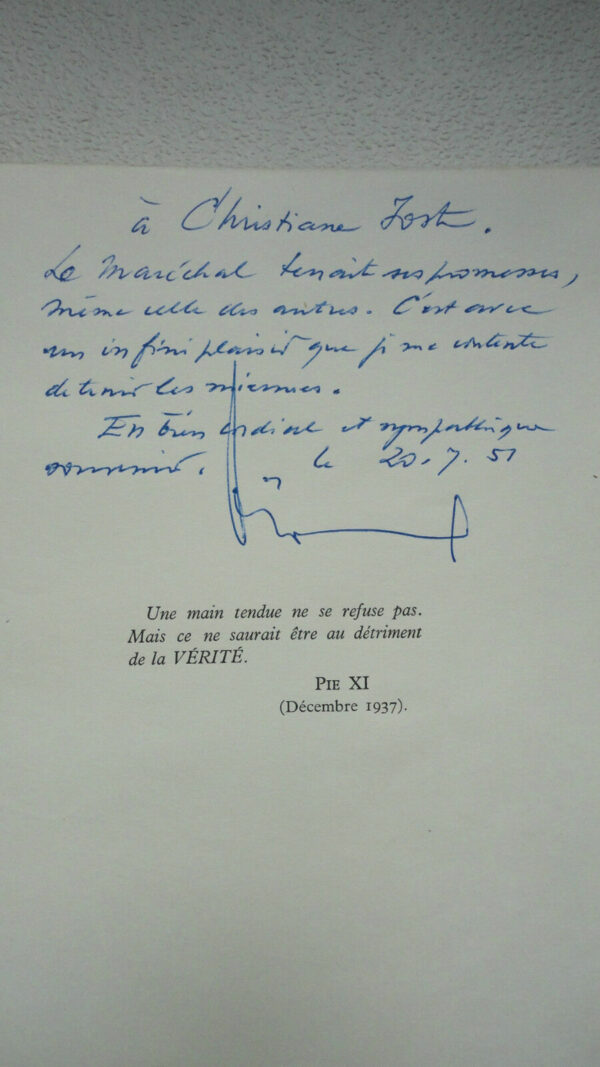 à Christiane Jost.
Le Maréchal tenait ses promesses,
même celle des autres. C'est avec
un infini plaisir que je me contente
de tenir les miennes.
En bien cordial et sympathique
souvenir. le 20.7.51
Une main tendue ne se refuse pas.
Mais ce ne saurait être au détriment
de la VÉRITÉ.
PIE XI
(Décembre 1937).